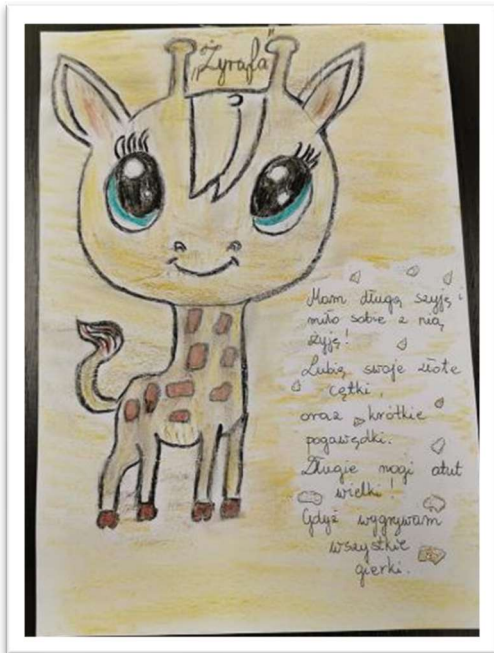 „Żyrafa"
Mam długą szyję i
miło sobie z nią
żyję!
Lubię swoje złote
cętki,
oraz krótkie
pogawędki.
Długie nogi atut
wielki!
Gdyż wygrywam
wszystkie
gierki.